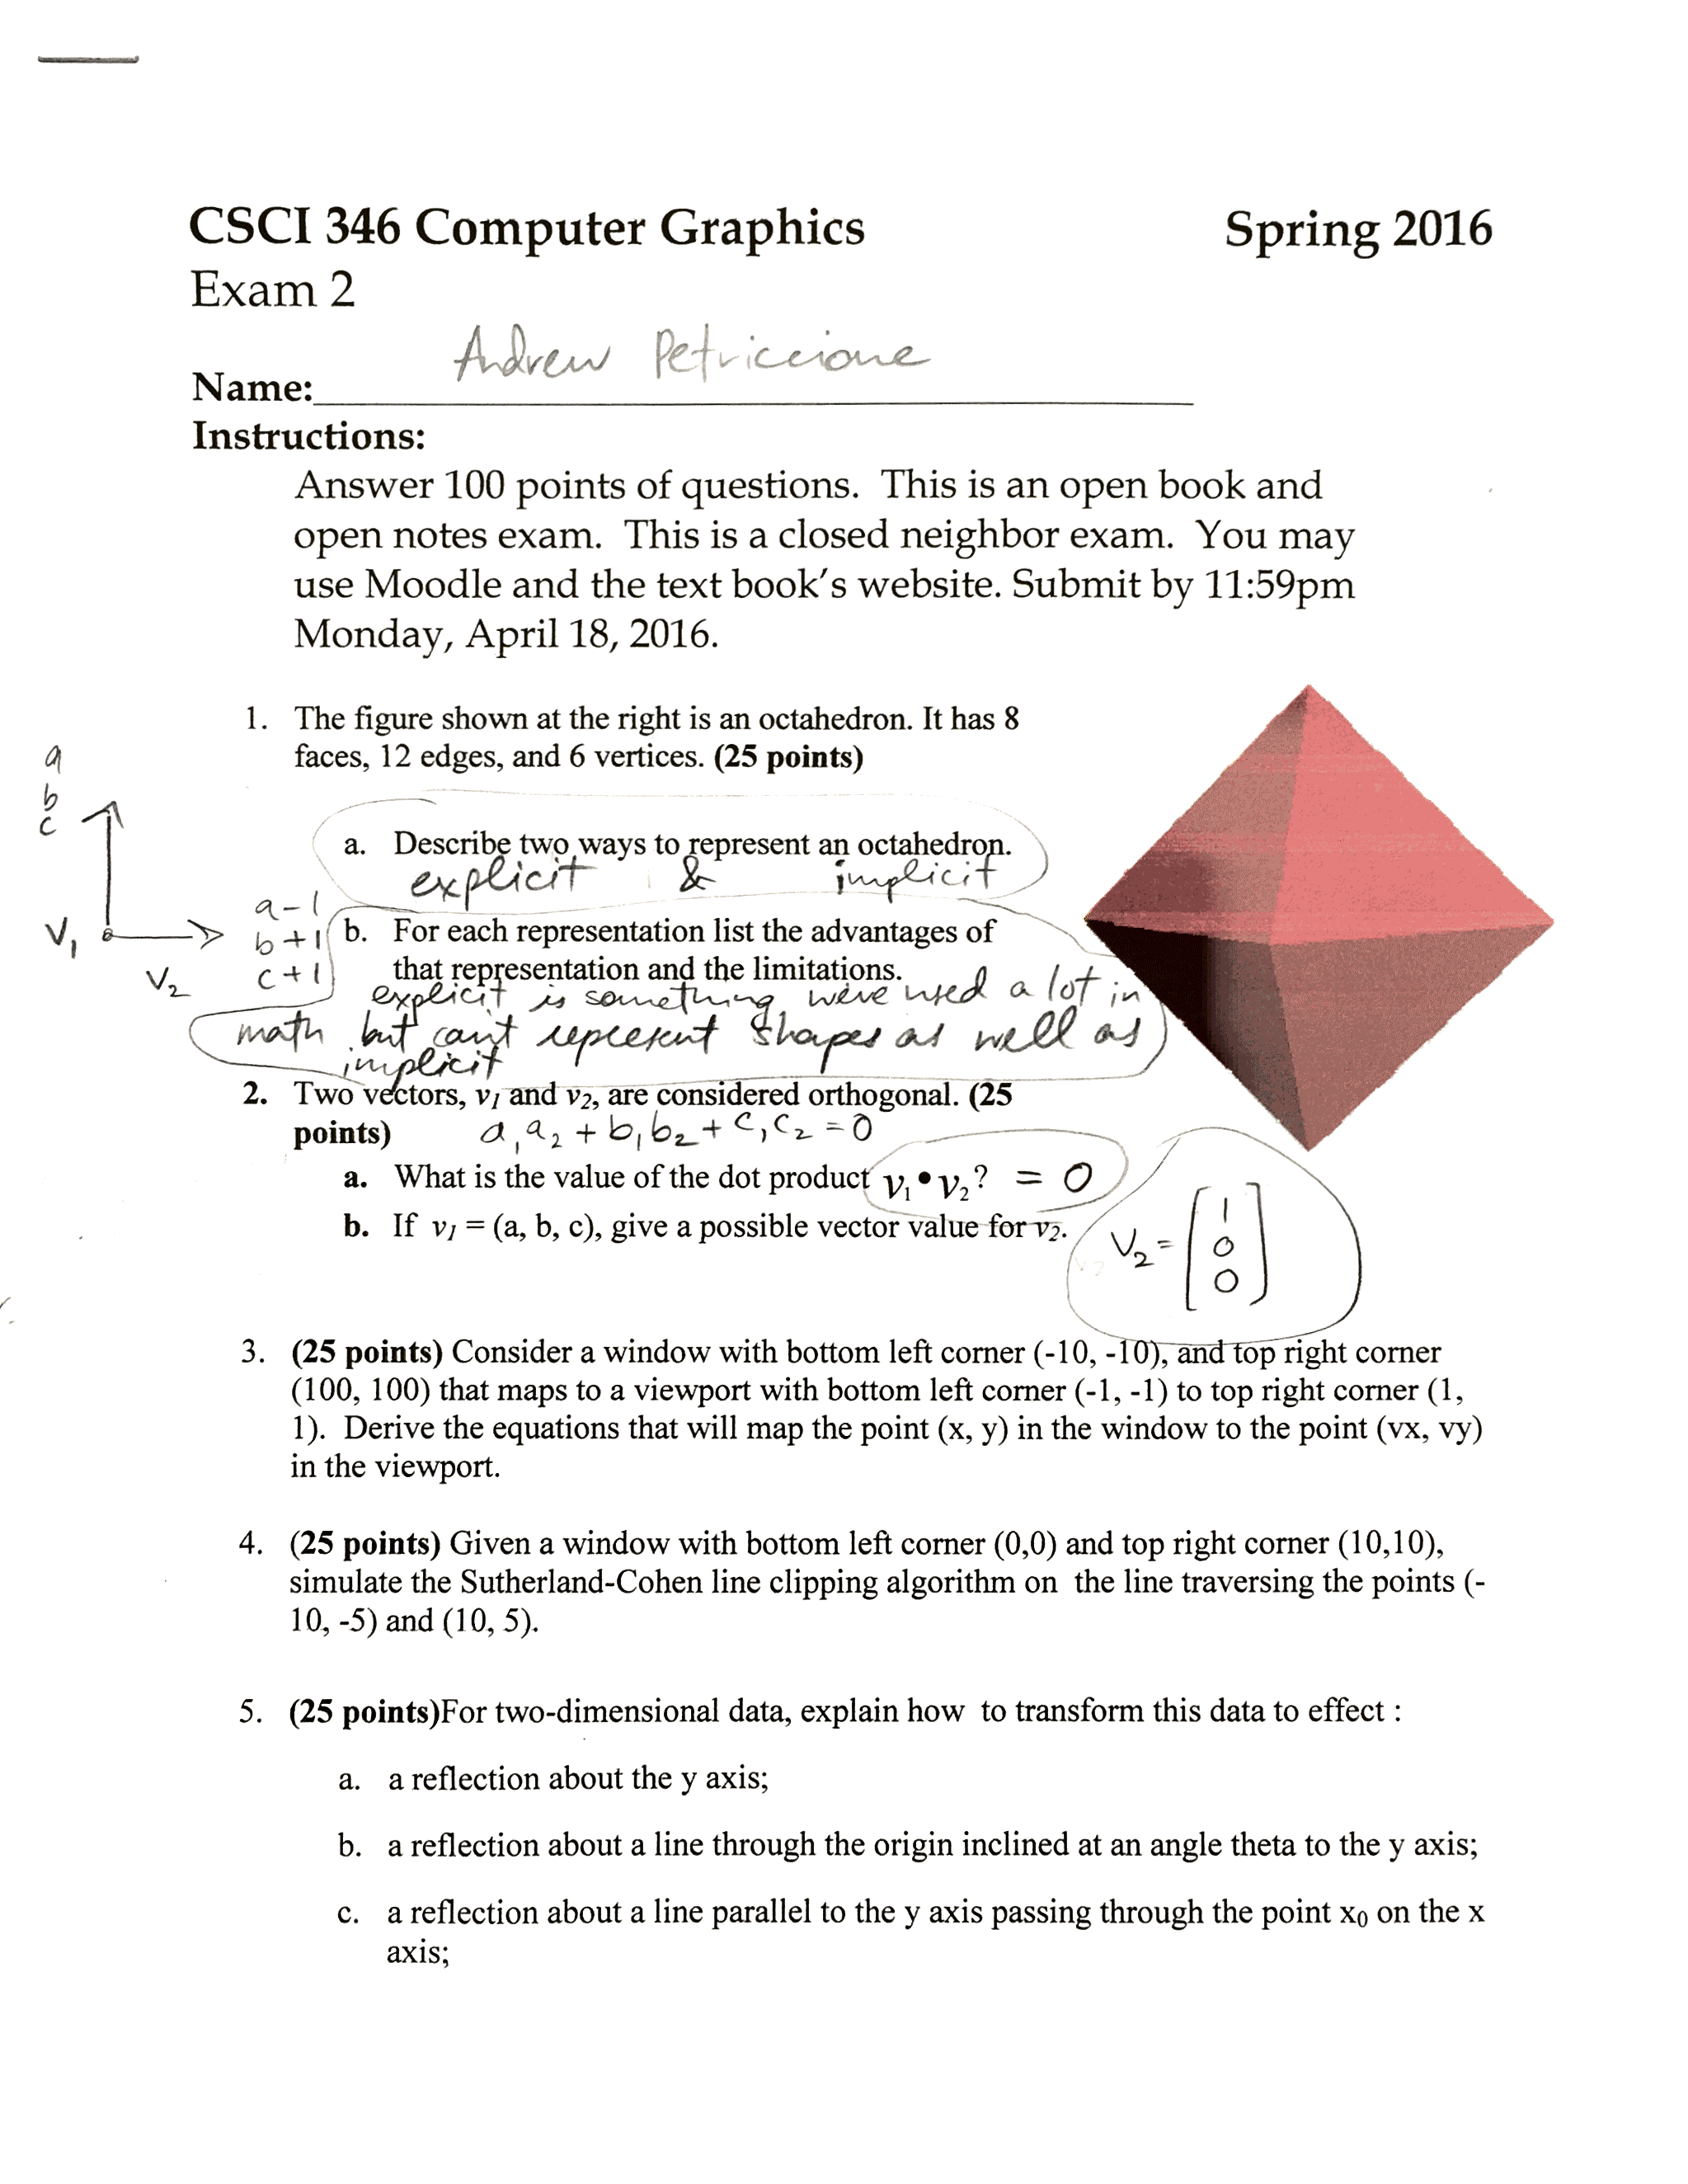 CSCI 346 Computer Graphics Spring 2016
Exam 2
Andrew Petriccione
Name:
Instructions:
Answer 100 points of questions. This is an open book and
open notes exam. This is a closed neighbor exam. You may
use Moodle and the text book's website. Submit by 11:59pm
Monday, April 18, 2016.
1. The figure shown at the right is an octahedron. It has 8
faces, 12 edges, and 6 vertices. (25 points)
a
b
c
V₁
V₂
a-1
b+1
c+1
a. Describe two ways to represent an octahedron.
explicit & implicit
b. For each representation list the advantages of
that representation and the limitations.
explicit is something we've used a lot in
math but can't represent shapes as well as
implicit
2. Two vectors, v₁ and v₂, are considered orthogonal. (25
points) a₁a₂ + b₁b₂ + c₁c₂ = 0
a. What is the value of the dot product v₁•v₂? = 0
b. If v₁ = (a, b, c), give a possible vector value for v₂.
V₂ = [1
0
0]
3. (25 points) Consider a window with bottom left corner (-10, -10), and top right corner
(100, 100) that maps to a viewport with bottom left corner (-1, -1) to top right corner (1,
1). Derive the equations that will map the point (x, y) in the window to the point (vx, vy)
in the viewport.
4. (25 points) Given a window with bottom left corner (0,0) and top right corner (10,10),
simulate the Sutherland-Cohen line clipping algorithm on the line traversing the points (-
10, -5) and (10, 5).
5. (25 points)For two-dimensional data, explain how to transform this data to effect :
a. a reflection about the y axis;
b. a reflection about a line through the origin inclined at an angle theta to the y axis;
c. a reflection about a line parallel to the y axis passing through the point x₀ on the x
axis;